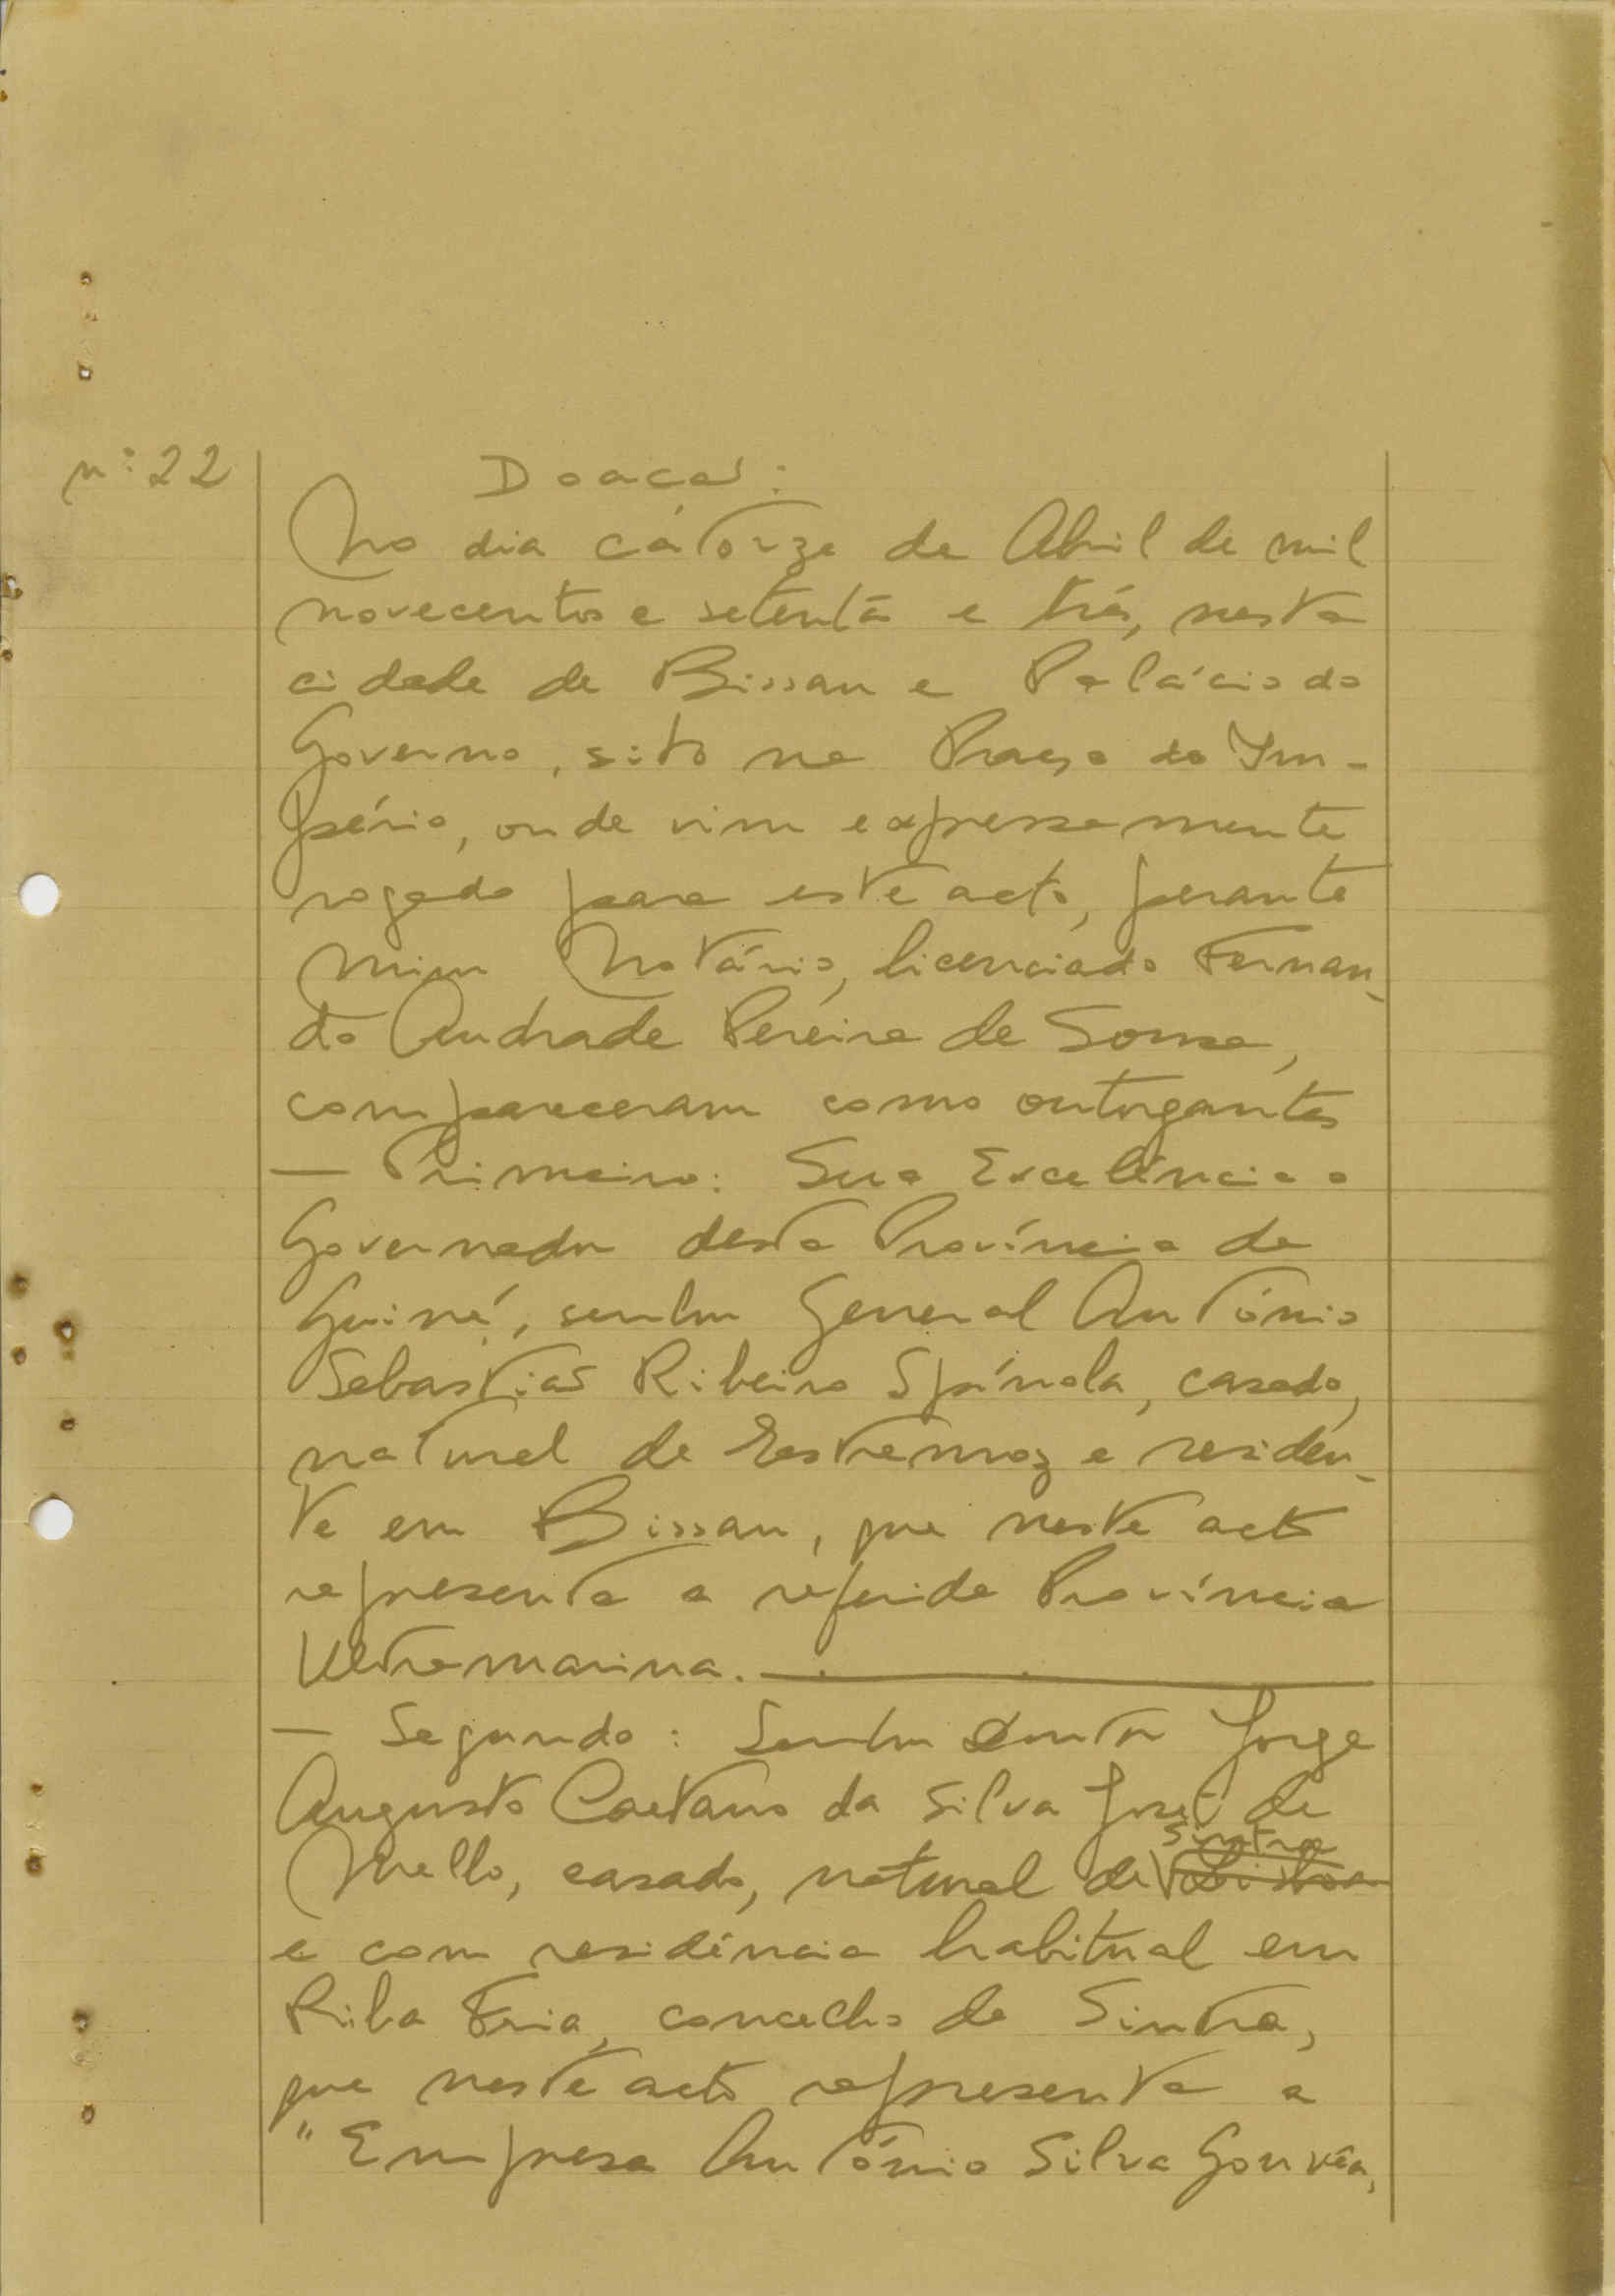 nº 22
Doação:
No dia catorze de Abril de mil
novecentos e setenta e três, nesta
cidade de Bissau e Palácio do
Governo, sito na Praça do Im-
pério, onde vim expressamente
rogado para este acto, perante
mim Notário, licenciado Fernan-
do Andrade Pereira de Sousa,
compareceram como outorgantes
— Primeiro: Sua Excelência o
Governador desta Província da
Guiné, senhor General António
Sebastião Ribeiro Spínola, casado,
natural de Estremoz e residen-
te em Bissau, que neste acto
representa a referida Província
Ultramarina.
— Segundo: Senhor Doutor Jorge
Augusto Caetano da Silva José de
Sintra
Mello, casado, natural de Lisboa
e com residência habitual em
Riba Fria, concelho de Sintra,
que neste acto representa a
"Empresa António Silva Gouvêa,